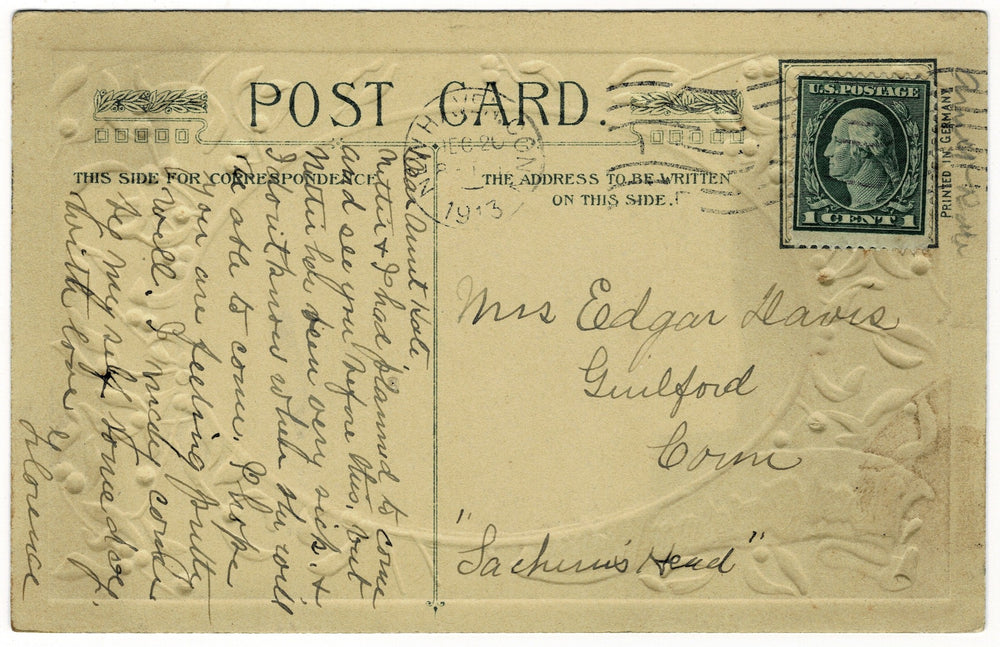 POST CARD.
THIS SIDE FOR CORRESPONDENCE
THE ADDRESS TO BE WRITTEN
ON THIS SIDE.
U.S. POSTAGE
1 CENT 1
PRINTED IN GERMANY
CONN
DEC 20
1913
Dear Aunt Kate,
Nettie & I had planned to come
and see you before this, but
Nettie has been very sick. &
I don't know when she will
be able to come. I hope
you are feeling pretty
well. I may come
by myself some day.
With love
Florence
Mrs Edgar Davis
Guilford
Conn
"Sachem's Head"